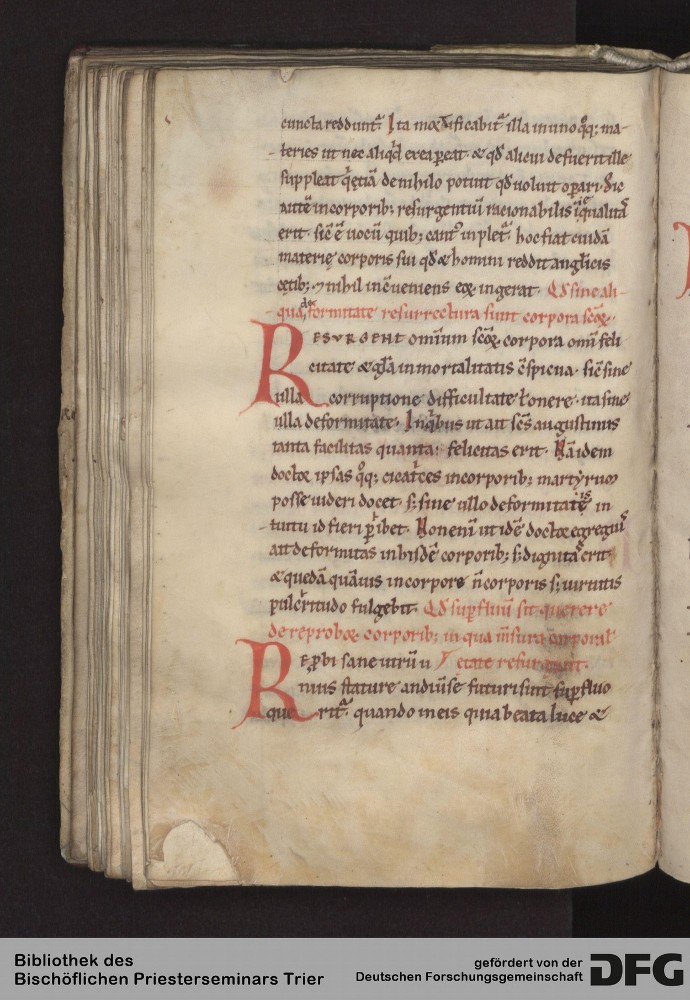 cuncta reddunt᷑. Ita modificabit᷑ illa in uno q̊q; ma-
teries ut nec aliqͥd ex ea ꝑeat. & qđ alicui defuerit ille
suppleat qͥ &iā de nihilo potuit qđ uoluit oꝑari. Sic
aut̄ē in corporib; resurgentiū racionabilis
erit. sic̄ ē uocū quib; cant᷒ implet᷑. hoc fiat cuidā
materię corporis sui qđ & homini reddit anglicis
cętib; ⁊ nihil incōueniens eoꝝ ingerat. Qđ sine ali-
qua deformitate resurrectura sunt corpora scōꝝ.
RESURGENT om̄ium scōꝝ corpora om̄i feli
citate & gl̄a inmortalitatis cōspicua. sic̄ sine
ulla corruptione difficultate ł onere. ita sine
ulla deformitate. In qͥbus ut ait scs̄ augustinus
tanta facilitas quanta felicitas erit. Nā idem
doctor ipsas q̊q; cicatͥces in corporib; martyrum
posse uideri docet. s; sine ullo deformitatis in
tuitu id fieri ꝑhibet. Non enī ut idē doctor egregius
ait deformitas in hisdē corporib; s; dignitas erit.
& quedā quāuis in corpore n̄ corporis s; uirtutis
pulcͥritudo fulgebit. Qđ suꝑfluū sit querere
de reproboꝝ corporib; in qua m̄sura corporal᷒
REꝓbi sane utrū u etate resurgant.
nius stature an diuse futuri sunt suꝑfluo
querit᷑. quando in eis quia beata luce &
Bibliothek des
Bischöflichen Priesterseminars Trier
gefördert von der
Deutschen Forschungsgemeinschaft
DFG